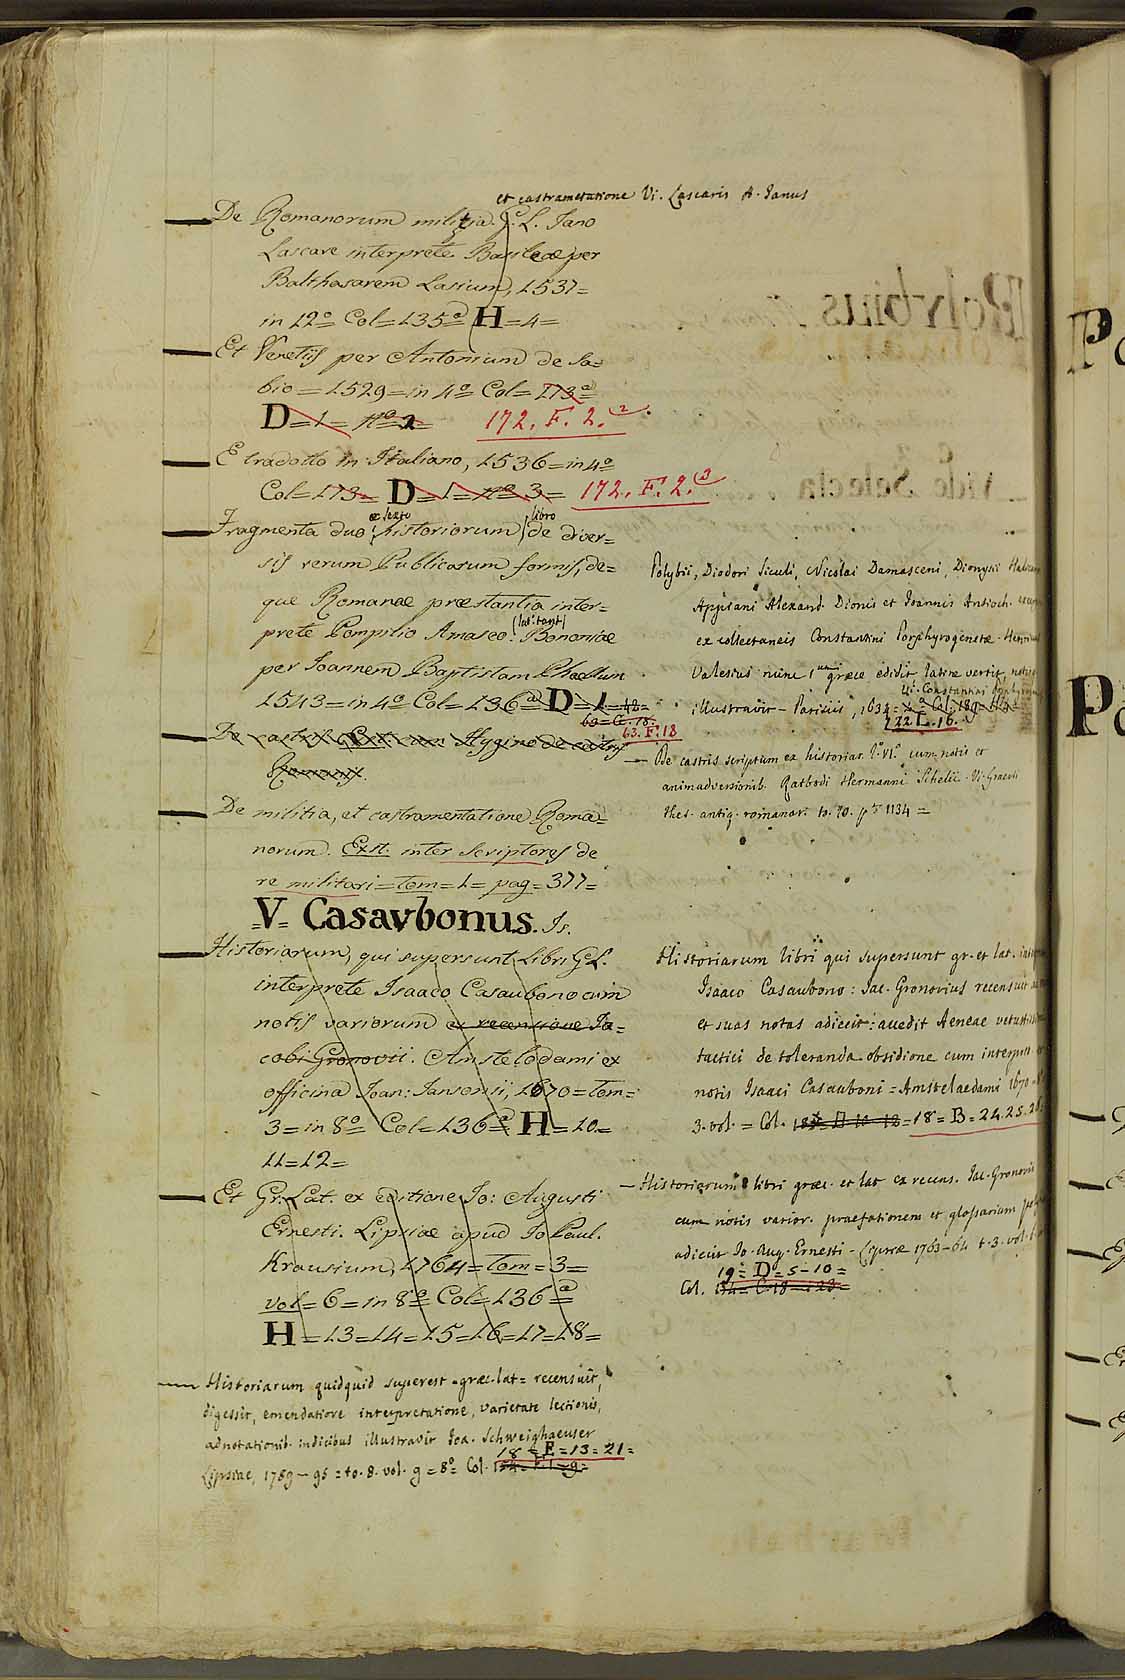 et castrametatione Vi. Lascaris A. Janus
De Romanorum militia. G. L. Jano
Lascare interprete. Basileæ per
Balthasarem Lasium, 1537=
in 12º Col=135ª H=4=
Et Venetiis per Antonium de Sa=
bio=1529=in 4º Col=173ª
D=1=nº 2= 172. F. 2.²
E tradotto in Italiano, 1536=in 4º
Col=173= D=1=nº 3= 172. F. 2.³
ex sexto libro
Fragmenta duo historiorum de diver=
sis rerum Publicarum formis, de=
que Romanæ præstantia inter=
prete Pompilio Amaseo. Bononiae
(lat. tant)
per Joannem Baptistam Phaellum
1543=in 4º Col=136ª D=1=48=
63. F. 18
De castris Hygino de castris
Romanis.
De militia, et castramentatione Roma=
norum. Ext. inter scriptores de
re militari=tom=1=pag=377=
V= Casavbonus. Is.
Historiarum, qui supersunt libri G L.
interprete Isaaco Casaubono cum
notis variorum ex recensione Ja=
cobi Gronovii. Amstelodami ex
officina Joan: Jansonii, 1670=Tom=
3=in 8º Col=136ª H=10=
11=12=
Et Gr. Lat. ex editione Jo: Augusti
Ernesti. Lipsiae apud Jo Paul.
Krausium, 1764=Tom=3=
vol=6=in 8º Col=136ª
H=13=14=15=16=17=18=
Historiarum quidquid superest = græc. lat = recensuit,
digessit, emendatiore interpretatione, varietate lectionis,
adnotationib. indicibus illustravit Joa. Schweighaeuser
18 = E = 13 = 21 =
Lipsiae, 1789 – 95 = to. 8. vol. 9 = 8º = Col. 154 = F. 1 = 9 =
Polybii, Diodori Siculi, Nicolai Damasceni, Dionysii
Appiani Alexand. Dionis et Joannis Antioch.
ex collectaneis Constantini Porphyrogenetæ. Henricus
Valesius nunc 1um græce edidit, latine vertit, notis
Vi. Constantinus
illustravit – Parisiis, 1634=
122 L. 16.
– De castris scriptum ex historiar. lº VIº cum notis et
animadversionib. Rathodi Hermanni Schelii. Vi. Graevii
thes. antiq. romanar. to. 10. p 1134 =
Historiarum libri qui supersunt gr. et lat.
Isaaco Casaubono: Jac. Gronovius recensuit
et suas notas adiecit: accedit Aeneae
tactici de toleranda obsidione cum interpret.
notis Isaaci Casauboni = Amstelaedami 1670
3. vol. = Col. = 18 = B = 24. 25. 26.
– Historiarum libri græc. et lat ex recens. Jac. Gronovii
cum notis varior. praefationem et glossarium
adiecit Jo. Aug. Ernesti – Lipsiæ 1763–64 t. 3. vol.
19 = D = 5 – 10 =
Col. 154 = C. 18 = 23 =
Po
Po